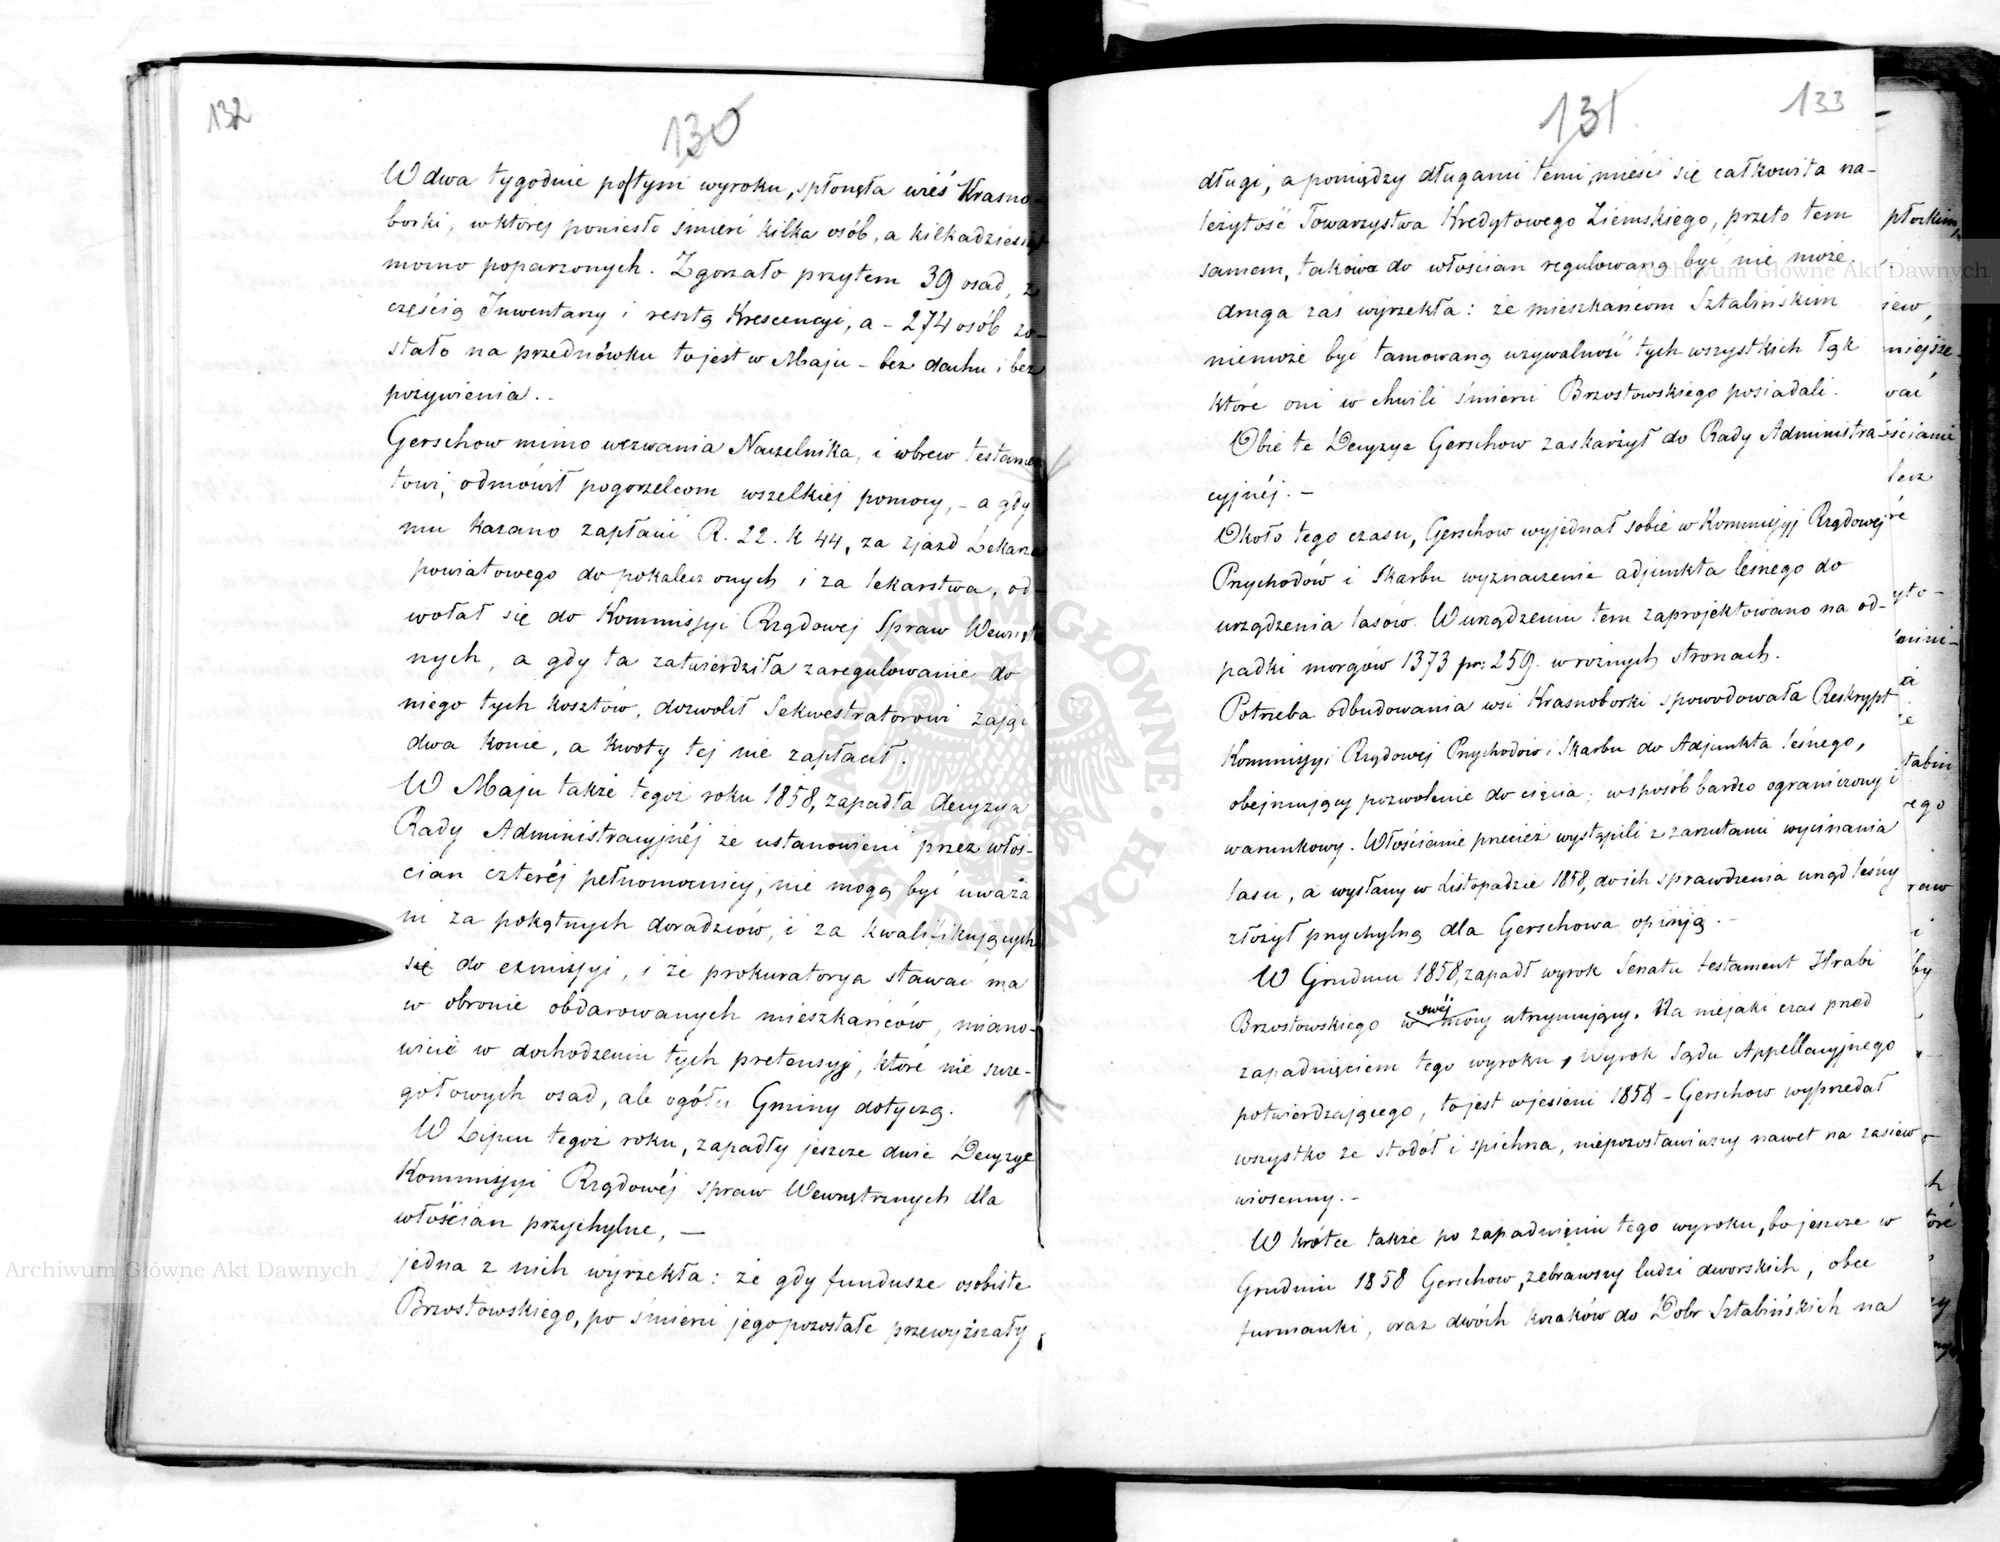 132
130
W dwa tygodnie po tym wyroku, spłonęła wieś Krasno-
borki, w której poniosło śmierć kilka osób, a kilkadziesiąt
mocno poparzonych. Zgorzało przytem 39 osad, z
częścią Inwentarzy i resztą Krescencyi, a - 274 osób zo-
stało na przednówku to jest w Maju - bez dachu i bez
pożywienia. -
Gerschow mimo wezwania Naczelnika, i wbrew testamen
towi, odmówił pogorzelcom wszelkiej pomocy, - a gdy
mu kazano zapłacić R. 22. k 44, za zjazd Lekarza
powiatowego do pokaleczonych i za lekarstwa, od-
wołał się do Kommissyi Rządowej Spraw Wewnętrz
nych, a gdy ta zatwierdziła zaregulowanie do
niego tych kosztów, dozwolił Sekwestratorowi zająć
dwa konie, a kwoty tej nie zapłacił.
W Maju także tegoż roku 1858, zapadła decyzya
Rady Administracyjnéj że ustanowieni przez włoś-
cian czteréj pełnomocnicy, nie mogą być uważa
ni za pokątnych doradzców, i za kwalifikujących
się do exmissyi, i że prokuratorya stawać ma
w obronie obdarowanych mieszkańców, miano-
wicie w dochodzeniu tych pretensyj, które nie szcze-
gołowych osad, ale ogółu Gminy dotyczą.
W Lipcu tegoż roku, zapadły jeszcze dwie Decyzye
Kommissyi Rządowéj spraw Wewnętrznych dla
włościan przychylne, —
jedna z nich wyrzekła: że gdy fundusze osobiste
Brzostowskiego, po śmierci jego pozostałe przewyższały
131
133
długi, a pomiędzy długami temi, mieści się całkowita na-
leżytość Towarzystwa Kredytowego Ziemskiego, przeto tem
samem, takowa do włościan regulowaną być nie może.
druga zaś wyrzekła: że mieszkańcom Sztabińskim
niemoże być tamowaną używalność tych wszystkich łąk
które oni w chwili śmierci Brzostowskiego posiadali.
Obie te Decyzye Gerschow zaskarżył do Rady Administra-
cyjnéj. -
Około tego czasu, Gerschow wyjednał sobie w Kommissyi Rządowej
Przychodów i Skarbu wyznaczenie adjunkta leśnego do
urządzenia lasów. W urządzeniu tem zaprojektowano na od-
padki morgów 1373 pr: 259. w rożnych stronach.
Potrzeba odbudowania wsi Krasnoborki spowodowała Reskrypt
Kommissyi Rządowej Przychodów i Skarbu do Adjunkta leśnego,
obejmujący pozwolenie do cięcia; w sposób bardzo ograniczony i
warunkowy. Włościanie przecież wystąpili z zarzutami wycinania
lasu, a wysłany w Listopadzie 1858, do ich sprawdzenia urząd leśny
złożył przychylną dla Gerschowa opinją. -
W Grudniu 1858, zapadł wyrok Senatu testament Hrabi
swéj
Brzostowskiego w mocy utrzymujący. Na niejaki czas przed
zapadnięciem tego wyroku, Wyrok Sądu Appellacyjnego
potwierdzającego, to jest w jesieni 1858 - Gerschow wyprzedał
wszystko ze stodół i spichrza, niepozostawiwszy nawet na zasiew
wiosenny. -
W krótce także po zapadnięciu tego wyroku, bo jeszcze w
Grudniu 1858 Gerschow, zebrawszy ludzi dworskich, obce
furmanki, oraz dwóch kozaków do Dobr Sztabińskich na